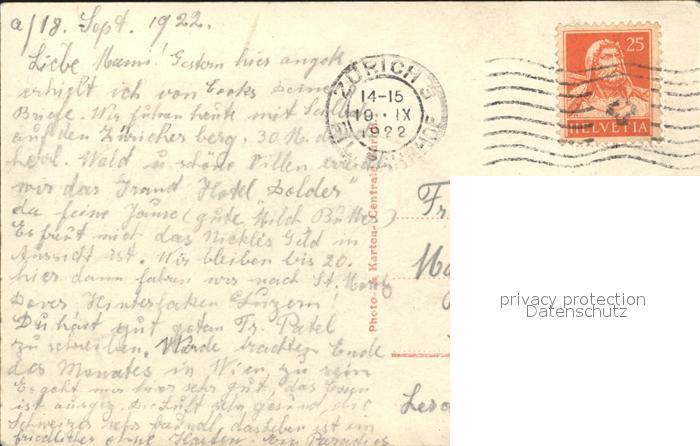 a/18. Sept. 1922.
Liebe Mami! Gestern hier angek.
erhielt ich von Cooks Deine
Briefe. Wir fuhren heute mit
auf den Züricher berg. 30 M.
herrl. Wald u. schöne Villen
wir das Grand Hotel Dolder"
da feine Jause (gute Milch Butter)
Es freut mich das Nickles Geld in
Aussicht ist. Wir bleiben bis 20.
hier dann fahren wir nach St. Moritz
Davos Hinterlaken Luzern!
Du hast gut getan Fr. Patel
zu schreiben. Werde trachten Ende
des Monates in Wien zu sein
Es geht mir hier sehr gut, das Essen
ist ausgez. Die Luft sehr gesund, die
Schweizer sehr freundl, das leben ist ein
friedliches ohne Hasten. Ein Paradies
ZÜRICH
14-15
19. IX
1922
25
HELVETIA
Photo- und Karten-Centrale Zürich
Fr
privacy protection
Datenschutz